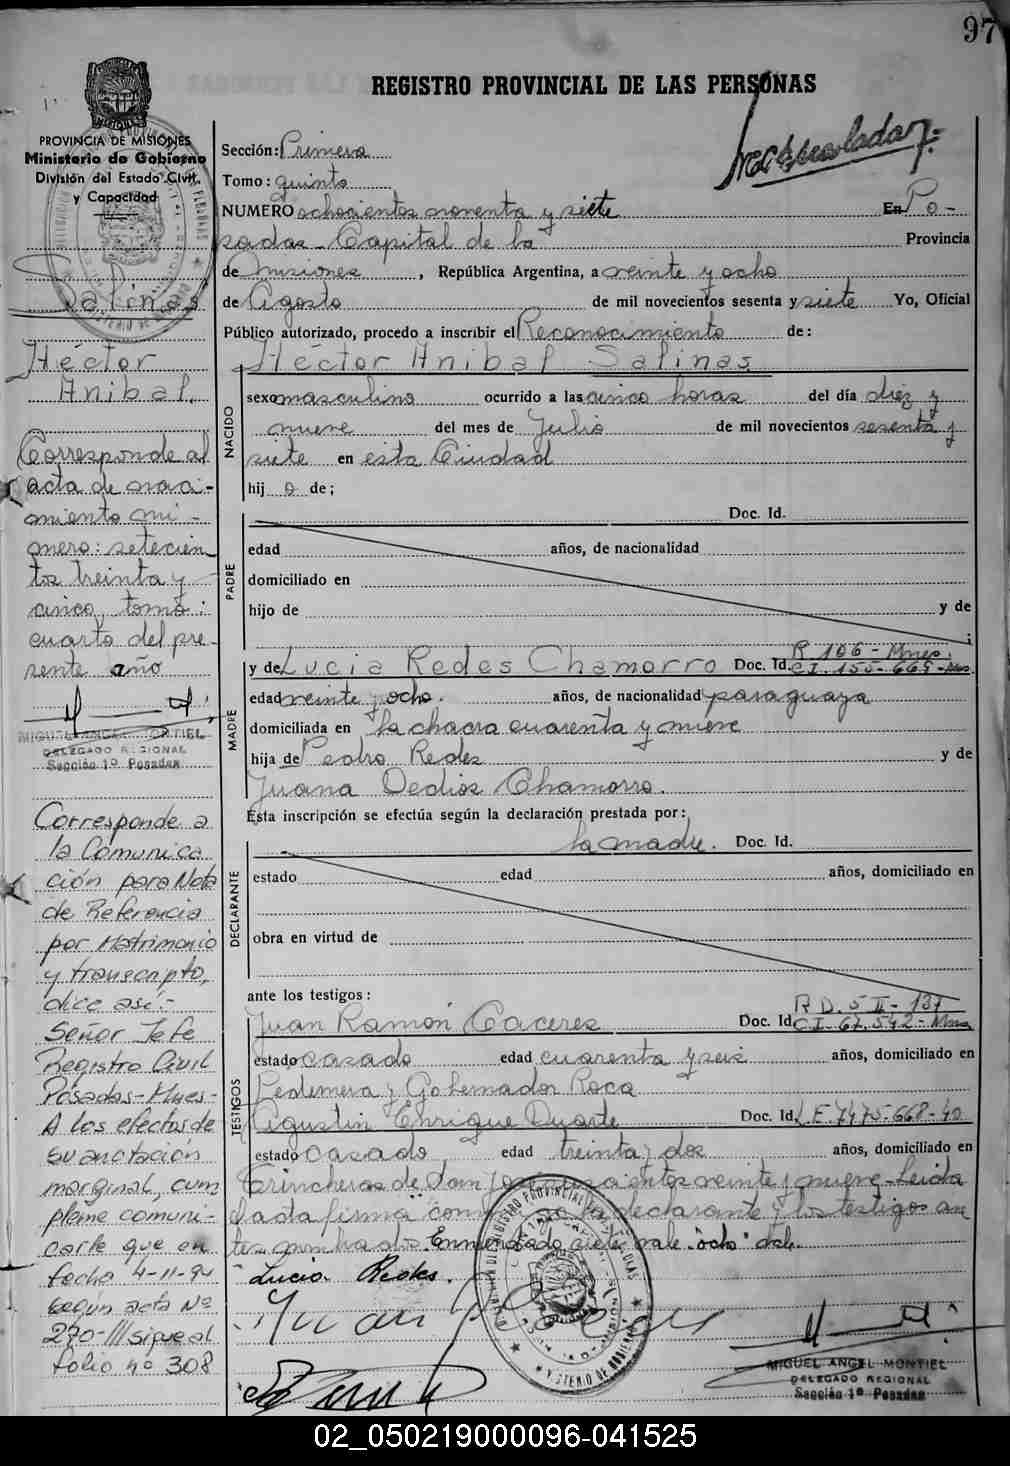 97
REGISTRO PROVINCIAL DE LAS PERSONAS
PROVINCIA DE MISIONES
Ministerio de Gobierno
División del Estado Civil
y Capacidad
Salinas
Héctor
Anibal.
Corresponde al
acta de naci-
miento nú-
mero: setecien
tos treinta y
cinco, tomo:
cuarto del pre-
sente año
MIGUEL ANGEL MONTIEL
DELEGADO REGIONAL
Sección 1º Posadas
Corresponde a
la Comunica
ción para Nota
de Referencia
por Matrimonio
y transcripto,
dice así:-
Señor Jefe
Registro Civil
Posadas-Mnes-
A los efectos de
su anotación
marginal, cum
pleme comuni-
carle que en
fecha 4-11-94
según acta Nº
270-III sigue al
folio nº 308
Sección: Primera
Tomo: quinto
NUMERO ochocientos noventa y siete En Po-
sadas-Capital de la Provincia
de Misiones, República Argentina, a veinte y ocho
de Agosto de mil novecientos sesenta y siete Yo, Oficial
Público autorizado, procedo a inscribir el Reconocimiento de:
Héctor Anibal Salinas
NACIDO
sexo masculino ocurrido a las cinco horas del día diez y
nueve del mes de Julio de mil novecientos sesenta y
siete en esta Ciudad
hijo de;
PADRE
Doc. Id.
edad años, de nacionalidad
domiciliado en
hijo de y de
;
MADRE
R 106-Mnes.
y de Lucia Redes Chamorro Doc. Id. C.I. 155-669-Mns.
edad veinte y ocho. años, de nacionalidad paraguaya
domiciliada en la chacra cuarenta y nueve
hija de Pedro Redes y de
Juana Dedios Chamorro.
Esta inscripción se efectúa según la declaración prestada por:
la madre. Doc. Id.
DECLARANTE
estado edad años, domiciliado en
obra en virtud de
ante los testigos:
TESTIGOS
R D. 5 II-137
Juan Ramón Caceres Doc. Id. C.I-67.542-Mns
estado casado edad cuarenta y seis años, domiciliado en
Pedemera y Gobernador Roca
Agustin Enrique Duarte Doc. Id. L.E-7475-668-40
estado casado edad treinta y dos años, domiciliado en
Trincheras de San José doscientos veinte y nueve-Leida
el acta firma conmigo la declarante y los testigos an
tes nombrados. Enmendado siete vale "ocho" vale.
Lucia Redes.
MIGUEL ANGEL MONTIEL
DELEGADO REGIONAL
Sección 1º Posadas
02_050219000096-041525